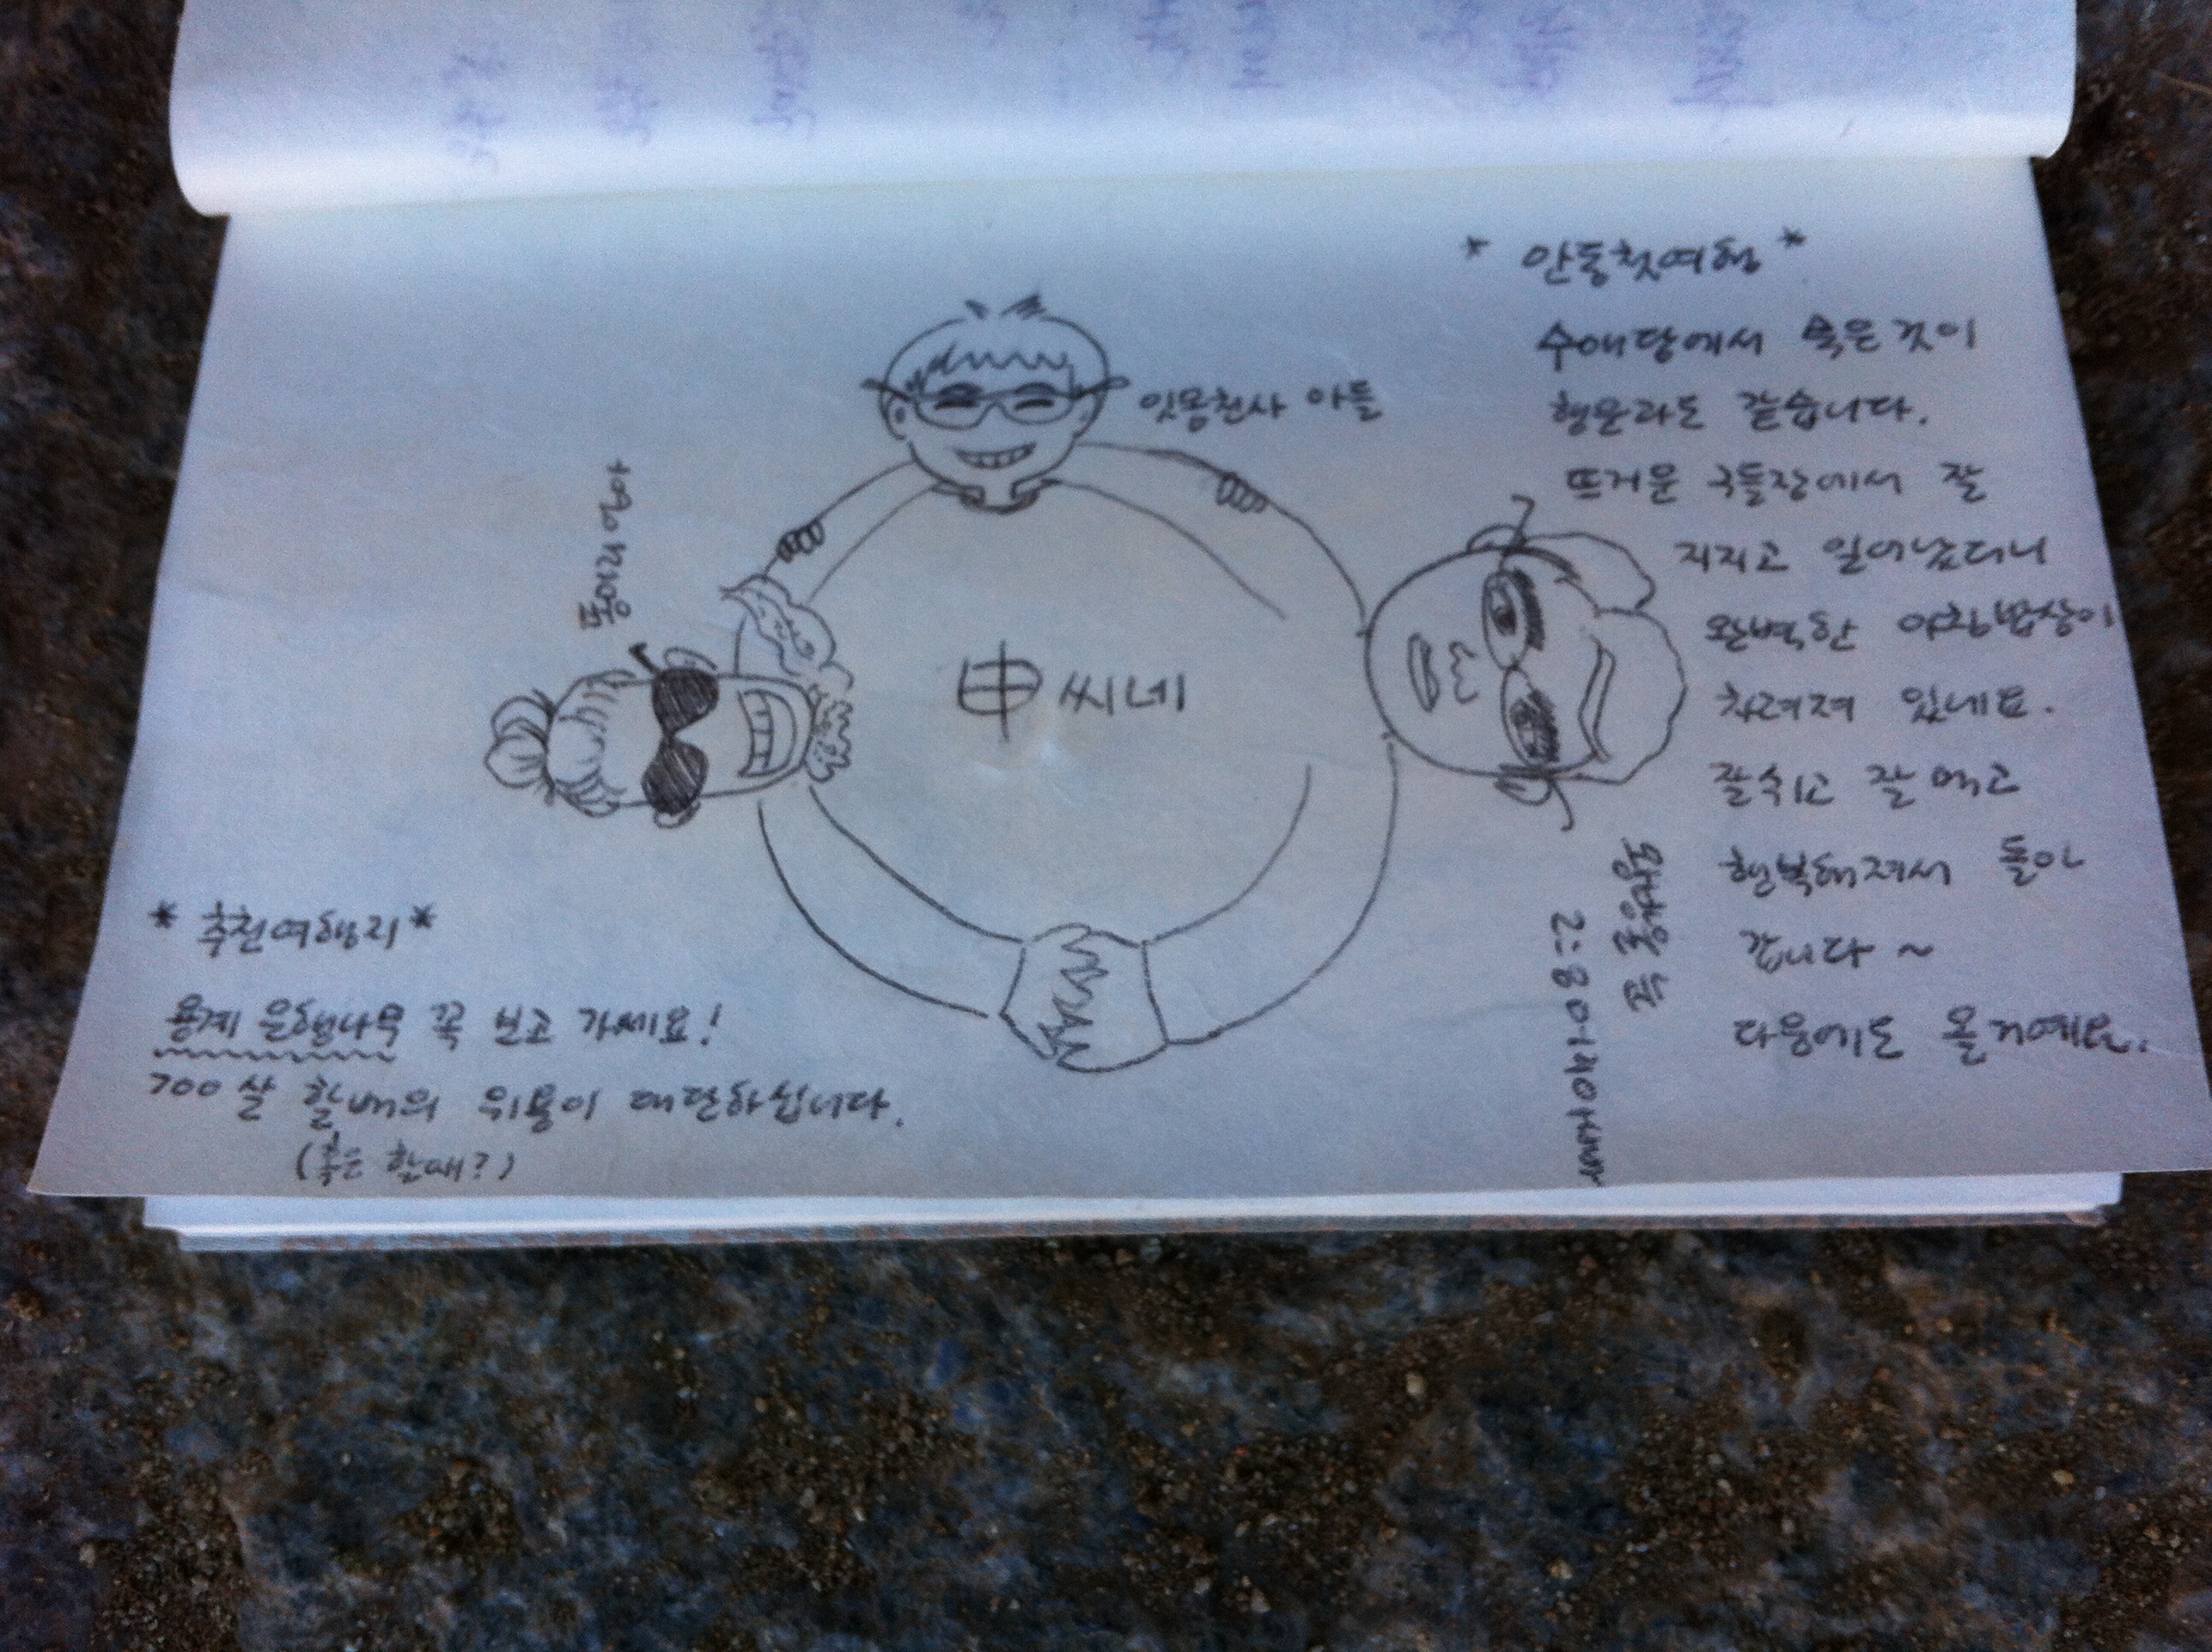 * 안동첫여행 *
수애당에서 묵은것이
행운라도 같습니다.
뜨거운 구들장에서 잘
지지고 일어났더니
완벽한 아침밥상이
차려져 있네요.
잘쉬고 잘먹고
행복해져서 돌아
갑니다 ~
다음에도 올거예요.
잇몸천사 아들
똥머리 엄마
申씨네
* 추천여행지 *
용계 은행나무 꼭 보고 가세요!
700살 할배의 위용이 대단하십니다.
(혹은 할매?)